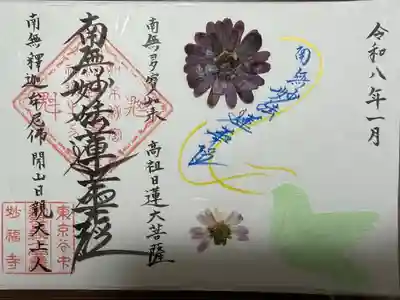 令和八年一月
南無妙法蓮華経
南無多寳如来
高祖日蓮大菩薩
南無妙法蓮華経
南無釋迦牟尼佛
開山日親大上人
東京谷中
妙福寺